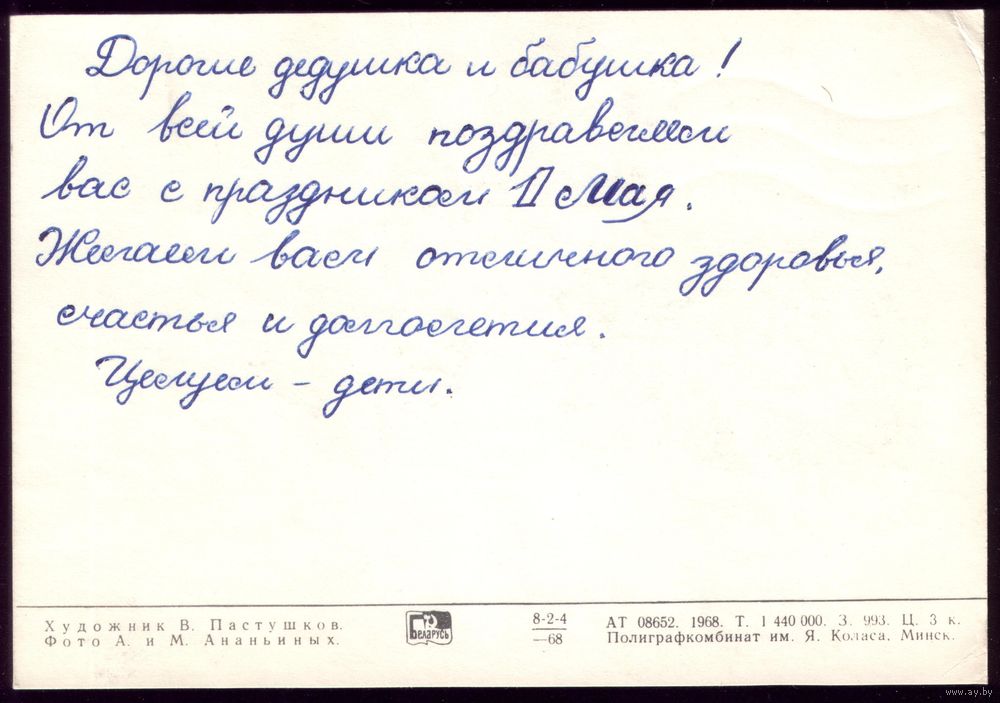 Дорогие дедушка и бабушка!
От всей души поздравляем
вас с праздником 1 Мая.
Желаем вам отличного здоровья,
счастья и долголетия.
Целуем – дети.
Художник В. Пастушков.
Фото А. и М. Ананьиных.
БЕЛАРУСЬ
8-2-4
—68
АТ 08652. 1968. Т. 1 440 000. З. 993. Ц. 3 к.
Полиграфкомбинат им. Я. Коласа, Минск.
www.ay.by